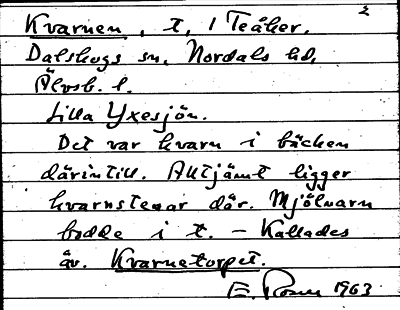 2
Kvarnen, t, 1 Teåker.
Dalskogs sn, Nordals hd,
Älvsb. l.
Lilla Yxesjön.
Det var kvarn i bäcken
därintill. Alltjämt ligger
kvarnstenar där. Mjölnarn
bodde i t. – Kallades
äv. Kvarnetorpet.
E. Rosen 1963